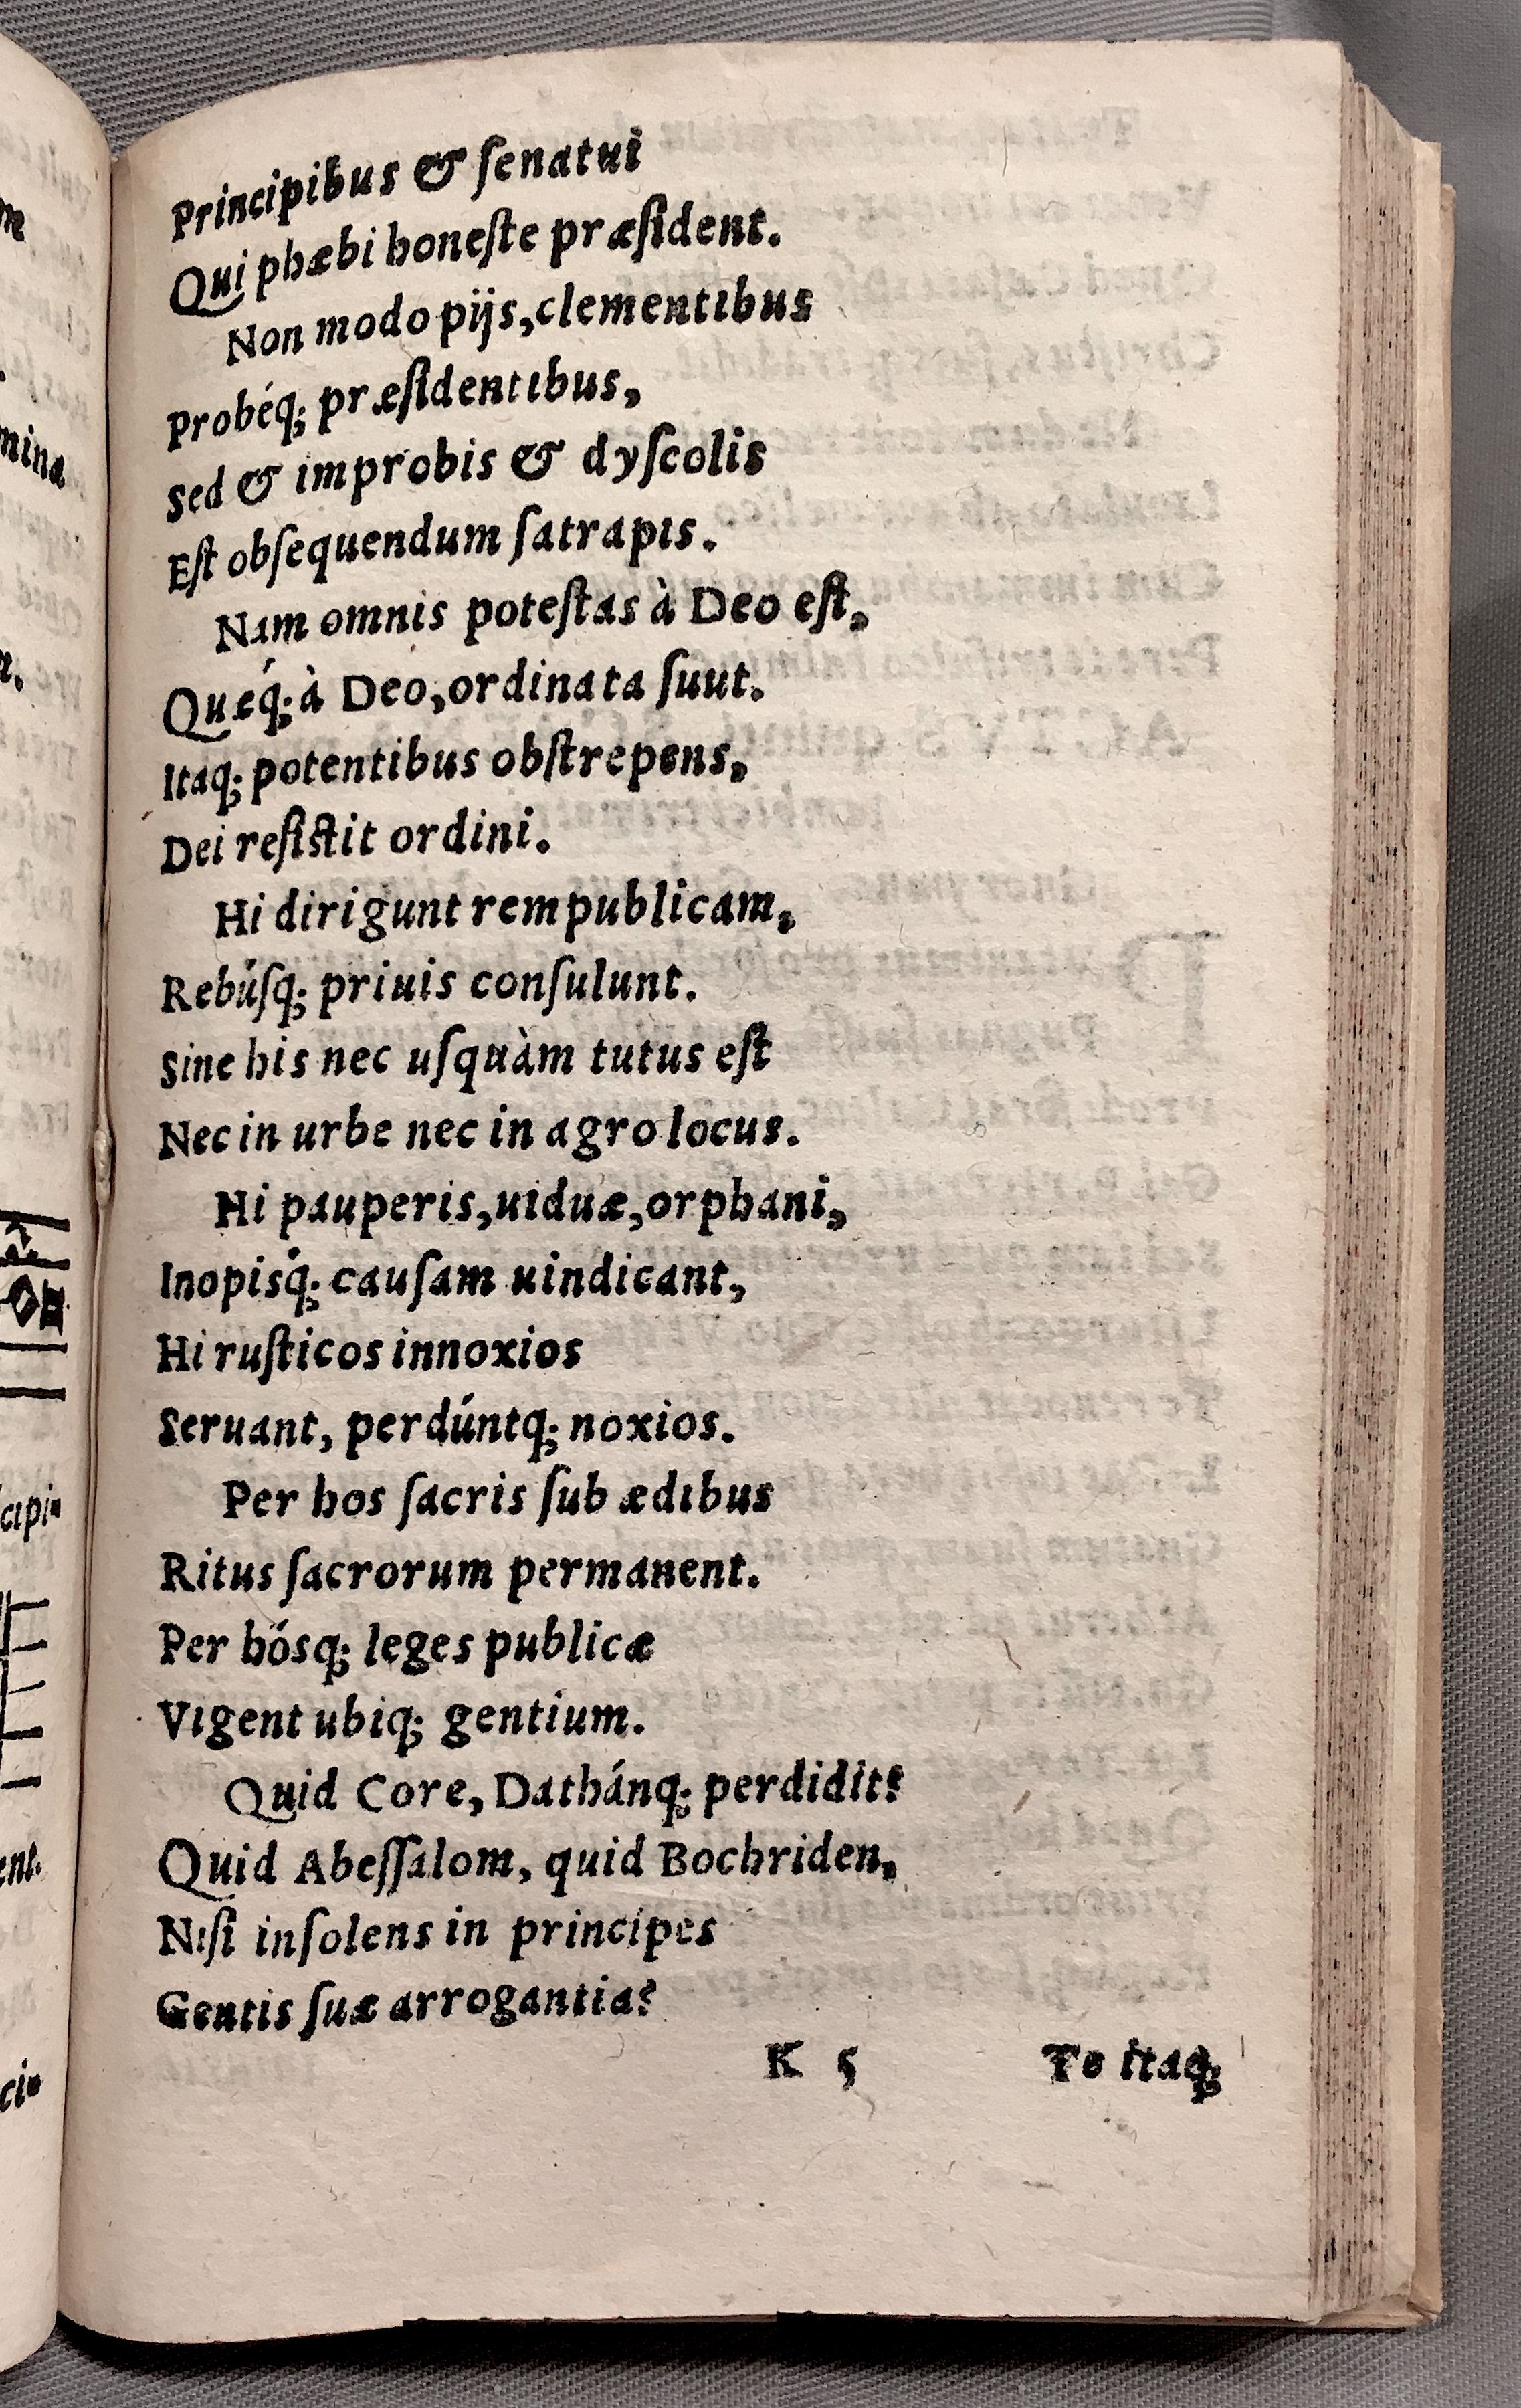 Principibus & ſenatui
Qui phæbi honeſte præſident.
Non modo pijs, clementibus
Probéq; præſidentibus,
Sed & improbis & dyſcolis
Eſt obſequendum ſatrapis.
Nam omnis poteſtas à Deo eſt,
Quæq́; à Deo, ordinata ſuut.
Itaq; potentibus obſtrepens,
Dei reſiſtit ordini.
Hi dirigunt rempublicam,
Rebúſq; priuis conſulunt.
Sine his nec uſquàm tutus eſt
Nec in urbe nec in agro locus.
Hi pauperis, uiduæ, orphani,
Inopisq́; cauſam uindicant,
Hi ruſticos innoxios
Seruant, perdúntq; noxios.
Per hos ſacris ſub ædibus
Ritus ſacrorum permanent.
Per hósq; leges publicæ
Vigent ubiq; gentium.
Quid Core, Dathánq; perdidit?
Quid Abeſſalom, quid Bochriden,
Niſi inſolens in principes
Gentis ſuæ arrogantia?
K 5 Te itaq;